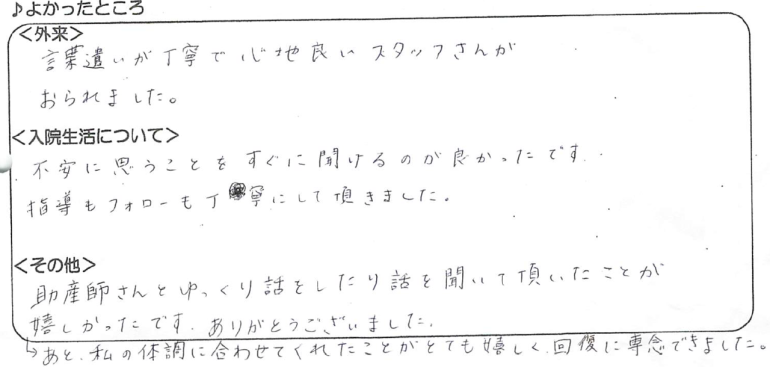 ♪よかったところ
<外来>
言葉遣いが丁寧で心地良いスタッフさんが
おられました。
<入院生活について>
不安に思うことをすぐに聞けるのが良かったです.
指導もフォローも丁寧にして頂きました。
<その他>
助産師さんとゆっくり話をしたり話を聞いて頂いたことが
嬉しかったです.ありがとうございました.
↳あと、私の体調に合わせてくれたことがとても嬉しく、回復に専念できました。